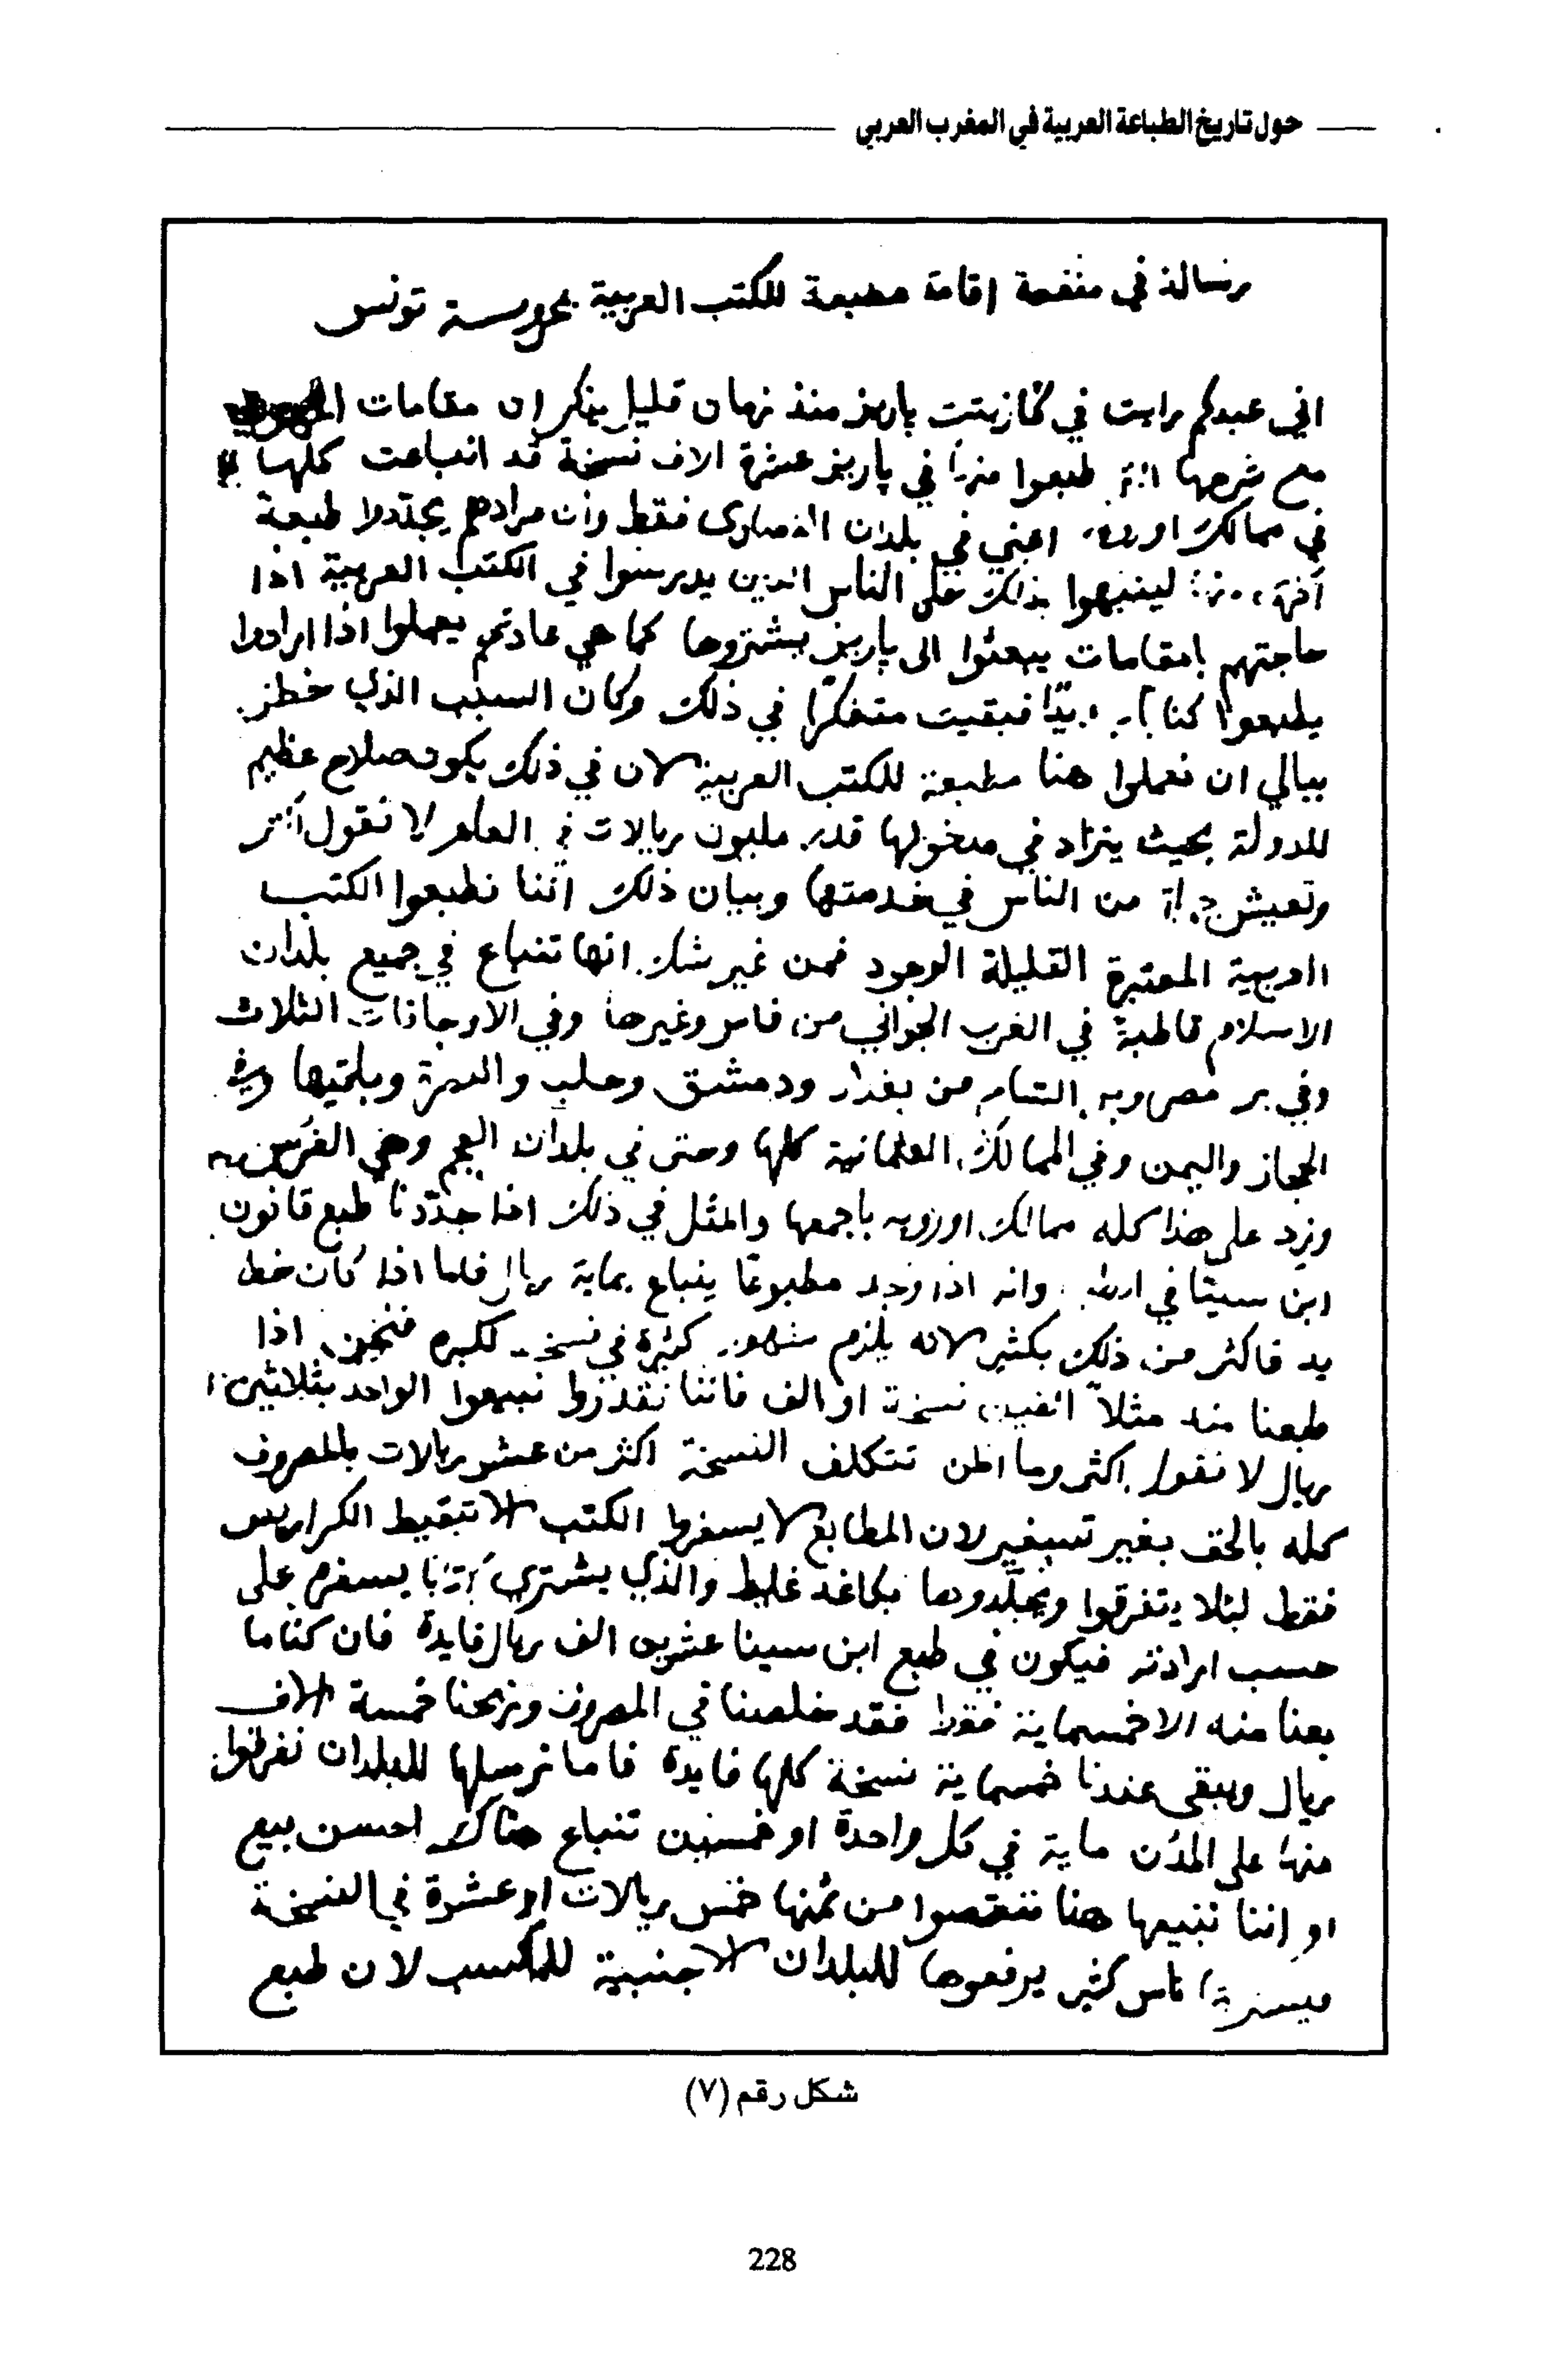 حول تاريخ الطباعة العربية في المغرب العربي
رسالة في منفعة اقامة مطبعة للكتب العربية بمحروسة تونس
اني عبدكم رايت في كازيتت باريز منذ زمان قليل يذكر ان مقامات
مع شرحها طبعوا منها في پاريز عشرة الاف نسخة قد انباعت كلها
في ممالك اعني في بلدان النصارى فقط وان مرادهم يجدّدوا طبعة
لينبهوا بذلك على الناس الذين يدرسوا في الكتب العربية اذا
حاجتهم بامقامات يبعثوا الى پاريز يشتروها كما هي عادتهم يعملوا اذا ارادوا
يطبعوا فبقيت متفكّرا في ذلك وكان السبب الذي خطر
ببالي ان نعملوا هنا مطبعة للكتب العربية لان في ذلك يكون صلاح عظيم
للدولة بحيث يتزاد في مدخولها قدر مليون ريالات في العام لا نقول اكثر
وتعيش من الناس في خدمتها وبيان ذلك اننا نطبعوا الكتب
العربية المعتبرة القليلة الوجود فمن غير شك انها تنباع في جميع بلدان
الاسلام قاطبة في الغرب الجواني من فاس وغيرها وفي الاوجاقات الثلاث
وفي بر مصر وبر الشام من بغداد ودمشق وحلب والبصرة ويلتيها وفي
الحجاز واليمن وفي الممالك العثمانية كلها وحتى في بلدان العجم وهي الفرس
وزد على هذا كله ممالك اوروبه باجمعها والمثل في ذلك اذا جدّدنا طبع قانون
ابن سينا في وانه اذا وجد مطبوعًا ينباع بماية ريال فاما اذا كان خط
يد فاكثر من ذلك بكثير لانه يلزم شهور كثيرة في نسخ فنحن اذا
طبعنا منه مثلاً الفين نسخة او الف فاننا نقدروا نبيعوا الواحد بثلاثين
ريال لا نقول اكثر وما اظن تتكلف النسخة اكثر من عشر ريالات بالمصروف
كله بالحق بغير تسفير لان المطابع لا يسفروا الكتب الا تبقيط الكراريس
فقط لئلا يتفرقوا ويجلّدوها بكاغد غليظ والذي يشتري كتابا يسفره على
حسب ارادته فيكون في طبع ابن سينا عشرين الف ريال فايدة فان كنا ما
بعنا منه الا خمسماية فقط فقد خلصنا في المصروف وربحنا خمسة الاف
ريال ويبقى عندنا خمسماية نسخة كلها فايدة فاما نرسلها للبلدان نفرقوا
منها على المدن ماية في كل واحدة او خمسين تنباع هناك احسن بيع
او اننا نبيعها هنا ننقصوا من ثمنها خمس ريالات او عشرة في النسخة
ناس كثير يرفعوها للبلدان الاجنبية للمكسب لان طبع
شكل رقم (٧)
228